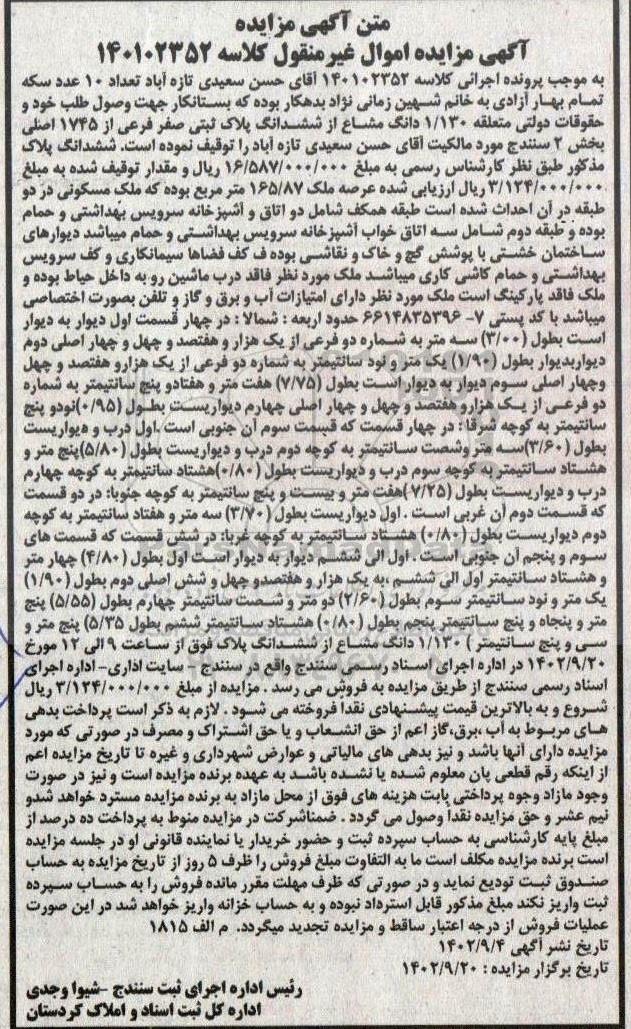 متن آگهی مزایده
آگهی مزایده اموال غیرمنقول کلاسه ۱۴۰۱۰۲۳۵۲
به موجب پرونده اجرائی کلاسه ۱۴۰۱۰۲۳۵۲ آقای حسن سعیدی تازه آباد تعداد ۱۰ عدد سکه
تمام بهار آزادی به خانم شهین زمانی نژاد بدهکار بوده که بستانکار جهت وصول طلب خود و
حقوقات دولتی متعلقه ۱/۱۳۰ دانگ مشاع از ششدانگ پلاک ثبتی صفر فرعی از ۱۷۴۵ اصلی
بخش ۲ سنندج مورد مالکیت آقای حسن سعیدی تازه آباد را توقیف نموده است. ششدانگ پلاک
مذکور طبق نظر کارشناس رسمی به مبلغ ۱۶/۵۸۷/۰۰۰/۰۰۰ ریال و مقدار توقیف شده به مبلغ
۳/۱۲۴/۰۰۰/۰۰۰ ریال ارزیابی شده عرصه ملک ۱۶۵/۸۷ متر مربع بوده که ملک مسکونی در دو
طبقه در آن احداث شده است طبقه همکف شامل دو اتاق و آشپزخانه سرویس بهداشتی و حمام
بوده و طبقه دوم شامل سه اتاق خواب آشپزخانه سرویس بهداشتی و حمام میباشد دیوارهای
ساختمان خشتی با پوشش گچ و خاک و نقاشی بوده ف کف فضاها سیمانکاری و کف سرویس
بهداشتی و حمام کاشی کاری میباشد ملک مورد نظر فاقد درب ماشین رو به داخل حیاط بوده و
ملک فاقد پارکینگ است ملک مورد نظر دارای امتیازات آب و برق و گاز و تلفن بصورت اختصاصی
میباشد با کد پستی ۷- ۶۶۱۴۸۳۵۳۹۶ حدود اربعه : شمالا : در چهار قسمت اول دیوار به دیوار
است بطول (۳/۰۰) سه متر به شماره دو فرعی از یک هزار و هفتصد و چهل و چهار اصلی دوم
دیواربدیوار بطول (۱/۹۰) یک متر و نود سانتیمتر به شماره دو فرعی از یک هزارو هفتصد و چهل
وچهار اصلی سوم دیوار به دیوار است بطول (۷/۷۵) هفت متر و هفتادو پنج سانتیمتر به شماره
دو فرعی از یک هزارو هفتصد و چهل و چهار اصلی چهارم دیواریست بطول (۰/۹۵)نودو پنج
سانتیمتر به کوچه شرقا : در چهار قسمت که قسمت سوم آن جنوبی است .اول درب و دیواریست
بطول (۳/۶۰)سه متر وشصت سانتیمتر به کوچه دوم درب و دیواریست بطول (۵/۸۰)پنج متر و
هشتاد سانتیمتر به کوچه سوم درب و دیواریست بطول (۰/۸۰)هشتاد سانتیمتر به کوچه چهارم
درب و دیواریست بطول (۷/۲۵)هفت متر و بیست و پنج سانتیمتر به کوچه جنوبا: در دو قسمت
که قسمت دوم آن غربی است . اول دیواریست بطول (۳/۷۰) سه متر و هفتاد سانتیمتر به کوچه
دوم دیواریست بطول (۰/۸۰) هشتاد سانتیمتر به کوچه غربا: در شش قسمت که قسمت های
سوم و پنجم آن جنوبی است . اول الی ششم دیوار به دیوار است اول بطول (۴/۸۰) چهار متر
و هشتاد سانتیمتر اول الی ششم ،به یک هزار و هفتصدو چهل و شش اصلی دوم بطول (۱/۹۰)
یک متر و نود سانتیمتر سوم بطول (۲/۶۰) دو متر و شصت سانتیمتر چهارم بطول (۵/۵۵) پنج
متر و پنجاه و پنج سانتیمتر پنجم بطول (۰/۸۰) هشتاد سانتیمتر ششم بطول ۵/۳۵) پنج متر و
سی و پنج سانتیمتر ) ۱/۱۳۰ دانگ مشاع از ششدانگ پلاک فوق از ساعت ۹ الی ۱۲ مورخ
۱۴۰۲/۹/۲۰ در اداره اجرای اسناد رسمی سنندج واقع در سنندج - سایت اداری- اداره اجرای
اسناد رسمی سنندج از طریق مزایده به فروش می رسد . مزایده از مبلغ ۳/۱۲۴/۰۰۰/۰۰۰ ریال
شروع و به بالاترین قیمت پیشنهادی نقدا فروخته می شود . لازم به ذکر است پرداخت بدهی
های مربوط به آب ،برق،گاز اعم از حق انشعاب و یا حق اشتراک و مصرف در صورتی که مورد
مزایده دارای آنها باشد و نیز بدهی های مالیاتی و عوارض شهرداری و غیره تا تاریخ مزایده اعم
از اینکه رقم قطعی پان معلوم شده یا نشده باشد به عهده برنده مزایده است و نیز در صورت
وجود مازاد وجوه پرداختی بابت هزینه های فوق از محل مازاد به برنده مزایده مسترد خواهد شدو
نیم عشر و حق مزایده نقداً وصول می گردد . ضمناشرکت در مزایده منوط به پرداخت ده درصد از
مبلغ پایه کارشناسی به حساب سپرده ثبت و حضور خریدار یا نماینده قانونی او در جلسه مزایده
است برنده مزایده مکلف است ما به التفاوت مبلغ فروش را ظرف ۵ روز از تاریخ مزایده به حساب
صندوق ثبت تودیع نماید و در صورتی که ظرف مهلت مقرر مانده فروش را به حساب سپرده
ثبت واریز نکند مبلغ مذکور قابل استرداد نبوده و به حساب خزانه واریز خواهد شد در این صورت
عملیات فروش از درجه اعتبار ساقط و مزایده تجدید میگردد. م الف ۱۸۱۵
تاریخ نشر آگهی ۱۴۰۲/۹/۴
تاریخ برگزار مزایده : ۱۴۰۲/۹/۲۰
رئیس اداره اجرای ثبت سنندج -شیوا وجدی
اداره کل ثبت اسناد و املاک کردستان